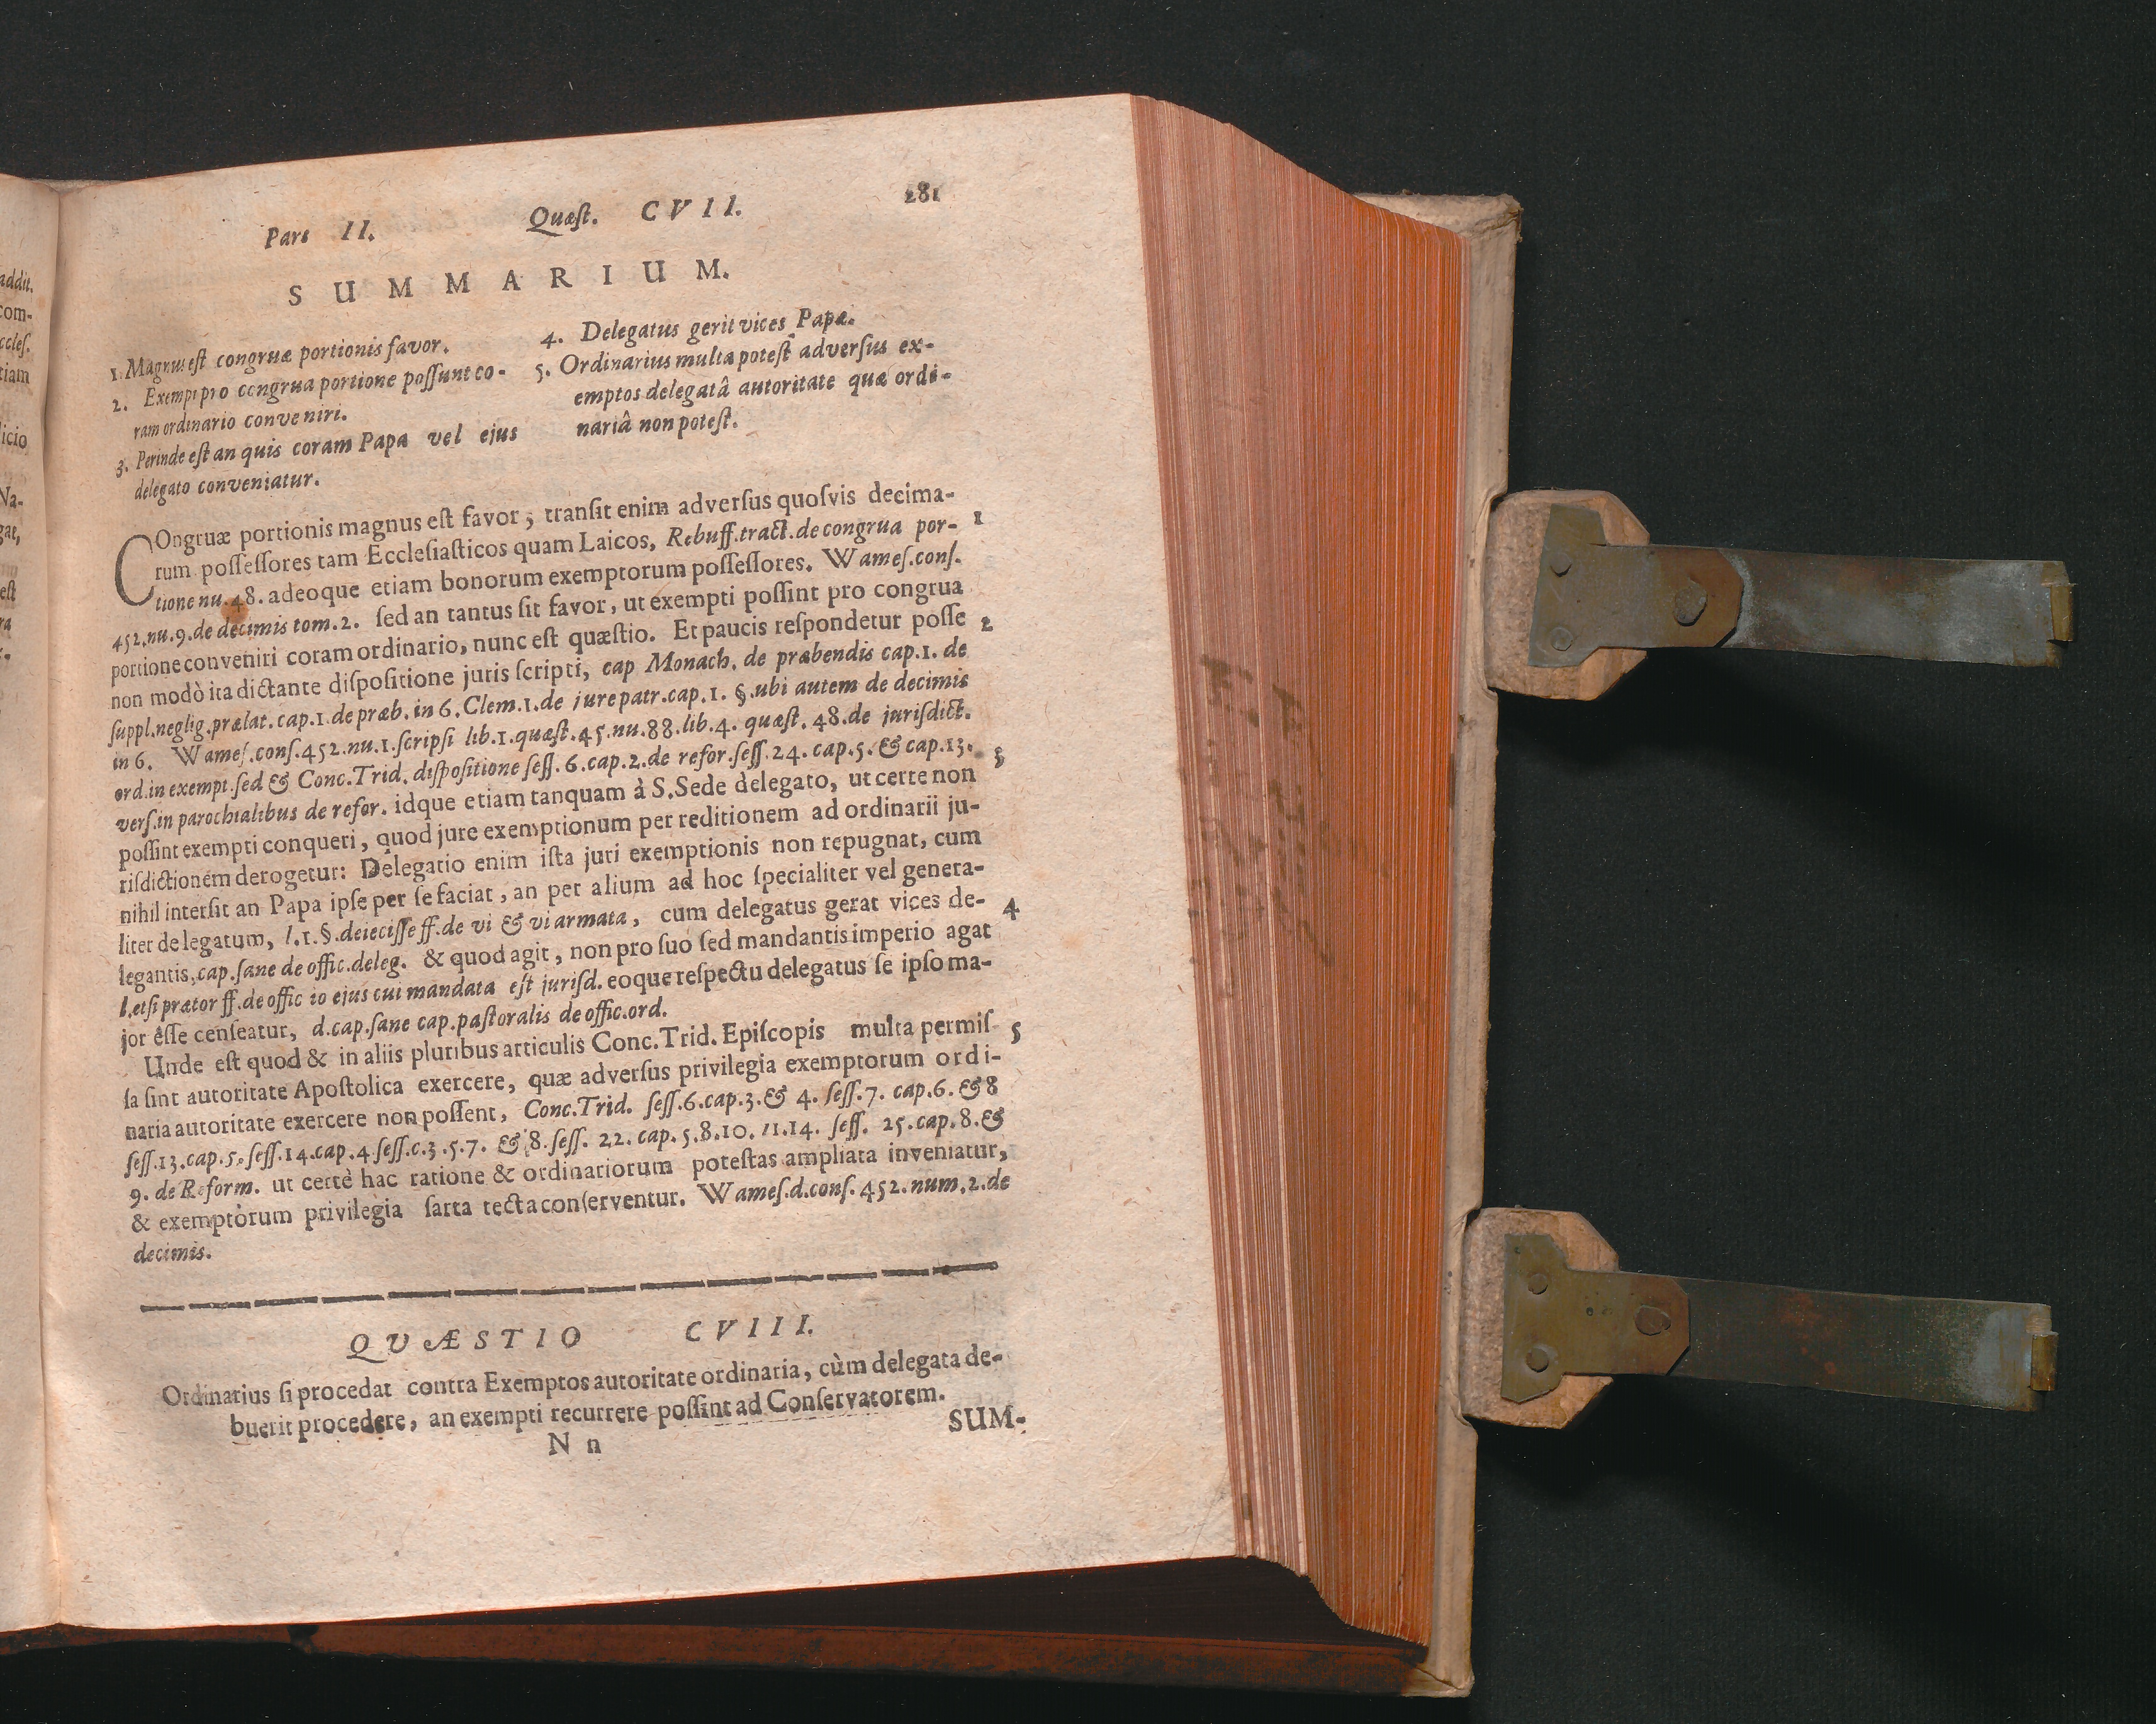 addit.
com-
ccles.
tiam
icio
Na-
gat,
est
ra
Pars II. Quæst. CVII. 281
SUMMARIUM.
1. Magnus est congruæ portionis favor.
2. Exempt pro congrua portione possunt co-
ram ordinario conveniri.
3. Perinde est an quis coram Papa vel ejus
delegato conveniatur.
4. Delegatus gerit vices Papæ.
5. Ordinarius multa potest adversus ex-
emptos delegatâ autoritate quæ ordi-
nariâ non potest.
COngruæ portionis magnus est favor, transit enim adversus quosvis decima- 1
rum possessores tam Ecclesiasticos quam Laicos, Rebuff.tract.de congrua por-
tione nu.48. adeoque etiam bonorum exemptorum possessores. Wames.cons.
452.nu.9.de decimis tom.2. sed an tantus sit favor, ut exempti possint pro congrua
portione conveniri coram ordinario, nunc est quæstio. Et paucis respondetur posse 2
non modò ita dictante dispositione juris scripti, cap Monach. de præbendis cap.1. de
suppl.neglig.prælat.cap.1.de præb. in 6. Clem.1.de jure patr.cap.1. §.ubi autem de decimis
in 6. Wames.cons.452.nu.1.scripsi lib.1.quæst.45.nu.88.lib.4. quæst. 48.de jurisdict.
ord.in exempt.sed & Conc.Trid. dispositione sess. 6.cap.2.de refor.sess.24. cap.5. & cap.13. 3
vers.in parochialibus de refor. idque etiam tanquam à S.Sede delegato, ut certe non
possint exempti conqueri, quod jure exemptionum per reditionem ad ordinarii ju-
risdictionem derogetur: Delegatio enim ista juri exemptionis non repugnat, cum
nihil intersit an Papa ipse per se faciat, an per alium ad hoc specialiter vel genera-
liter delegatum, l.1.§.deiecisse ff.de vi & vi armata, cum delegatus gerat vices de- 4
legantis, cap.sane de offic.deleg. & quod agit, non pro suo sed mandantis imperio agat
l.etsi prætor ff.de offic io ejus cui mandata est jurisd. eoque respectu delegatus se ipso ma-
jor êsse censeatur, d.cap.sane cap.pastoralis de offic.ord.
Unde est quod & in aliis pluribus articulis Conc.Trid. Episcopis multa permis 5
sa sint autoritate Apostolica exercere, quæ adversus privilegia exemptorum ordi-
naria autoritate exercere non possent, Conc.Trid. sess.6.cap.3.& 4. sess.7. cap.6. & 8
sess.13.cap.5.sess.14.cap.4.sess.c.3.5.7. & 8.sess. 22. cap.5.8.10. 11.14. sess. 25.cap.8.&
9. de Reform. ut certè hac ratione & ordinariorum potestas ampliata inveniatur,
& exemptòrum privilegia sarta tecta conserventur. Wames.d.cons.452.num.2.de
decimis.
QUÆSTIO CVIII.
Ordinarius si procedat contra Exemptos autoritate ordinaria, cùm delegata de-
buerit procedere, an exempti recurrere possint ad Conservatorem.
N n SUM-